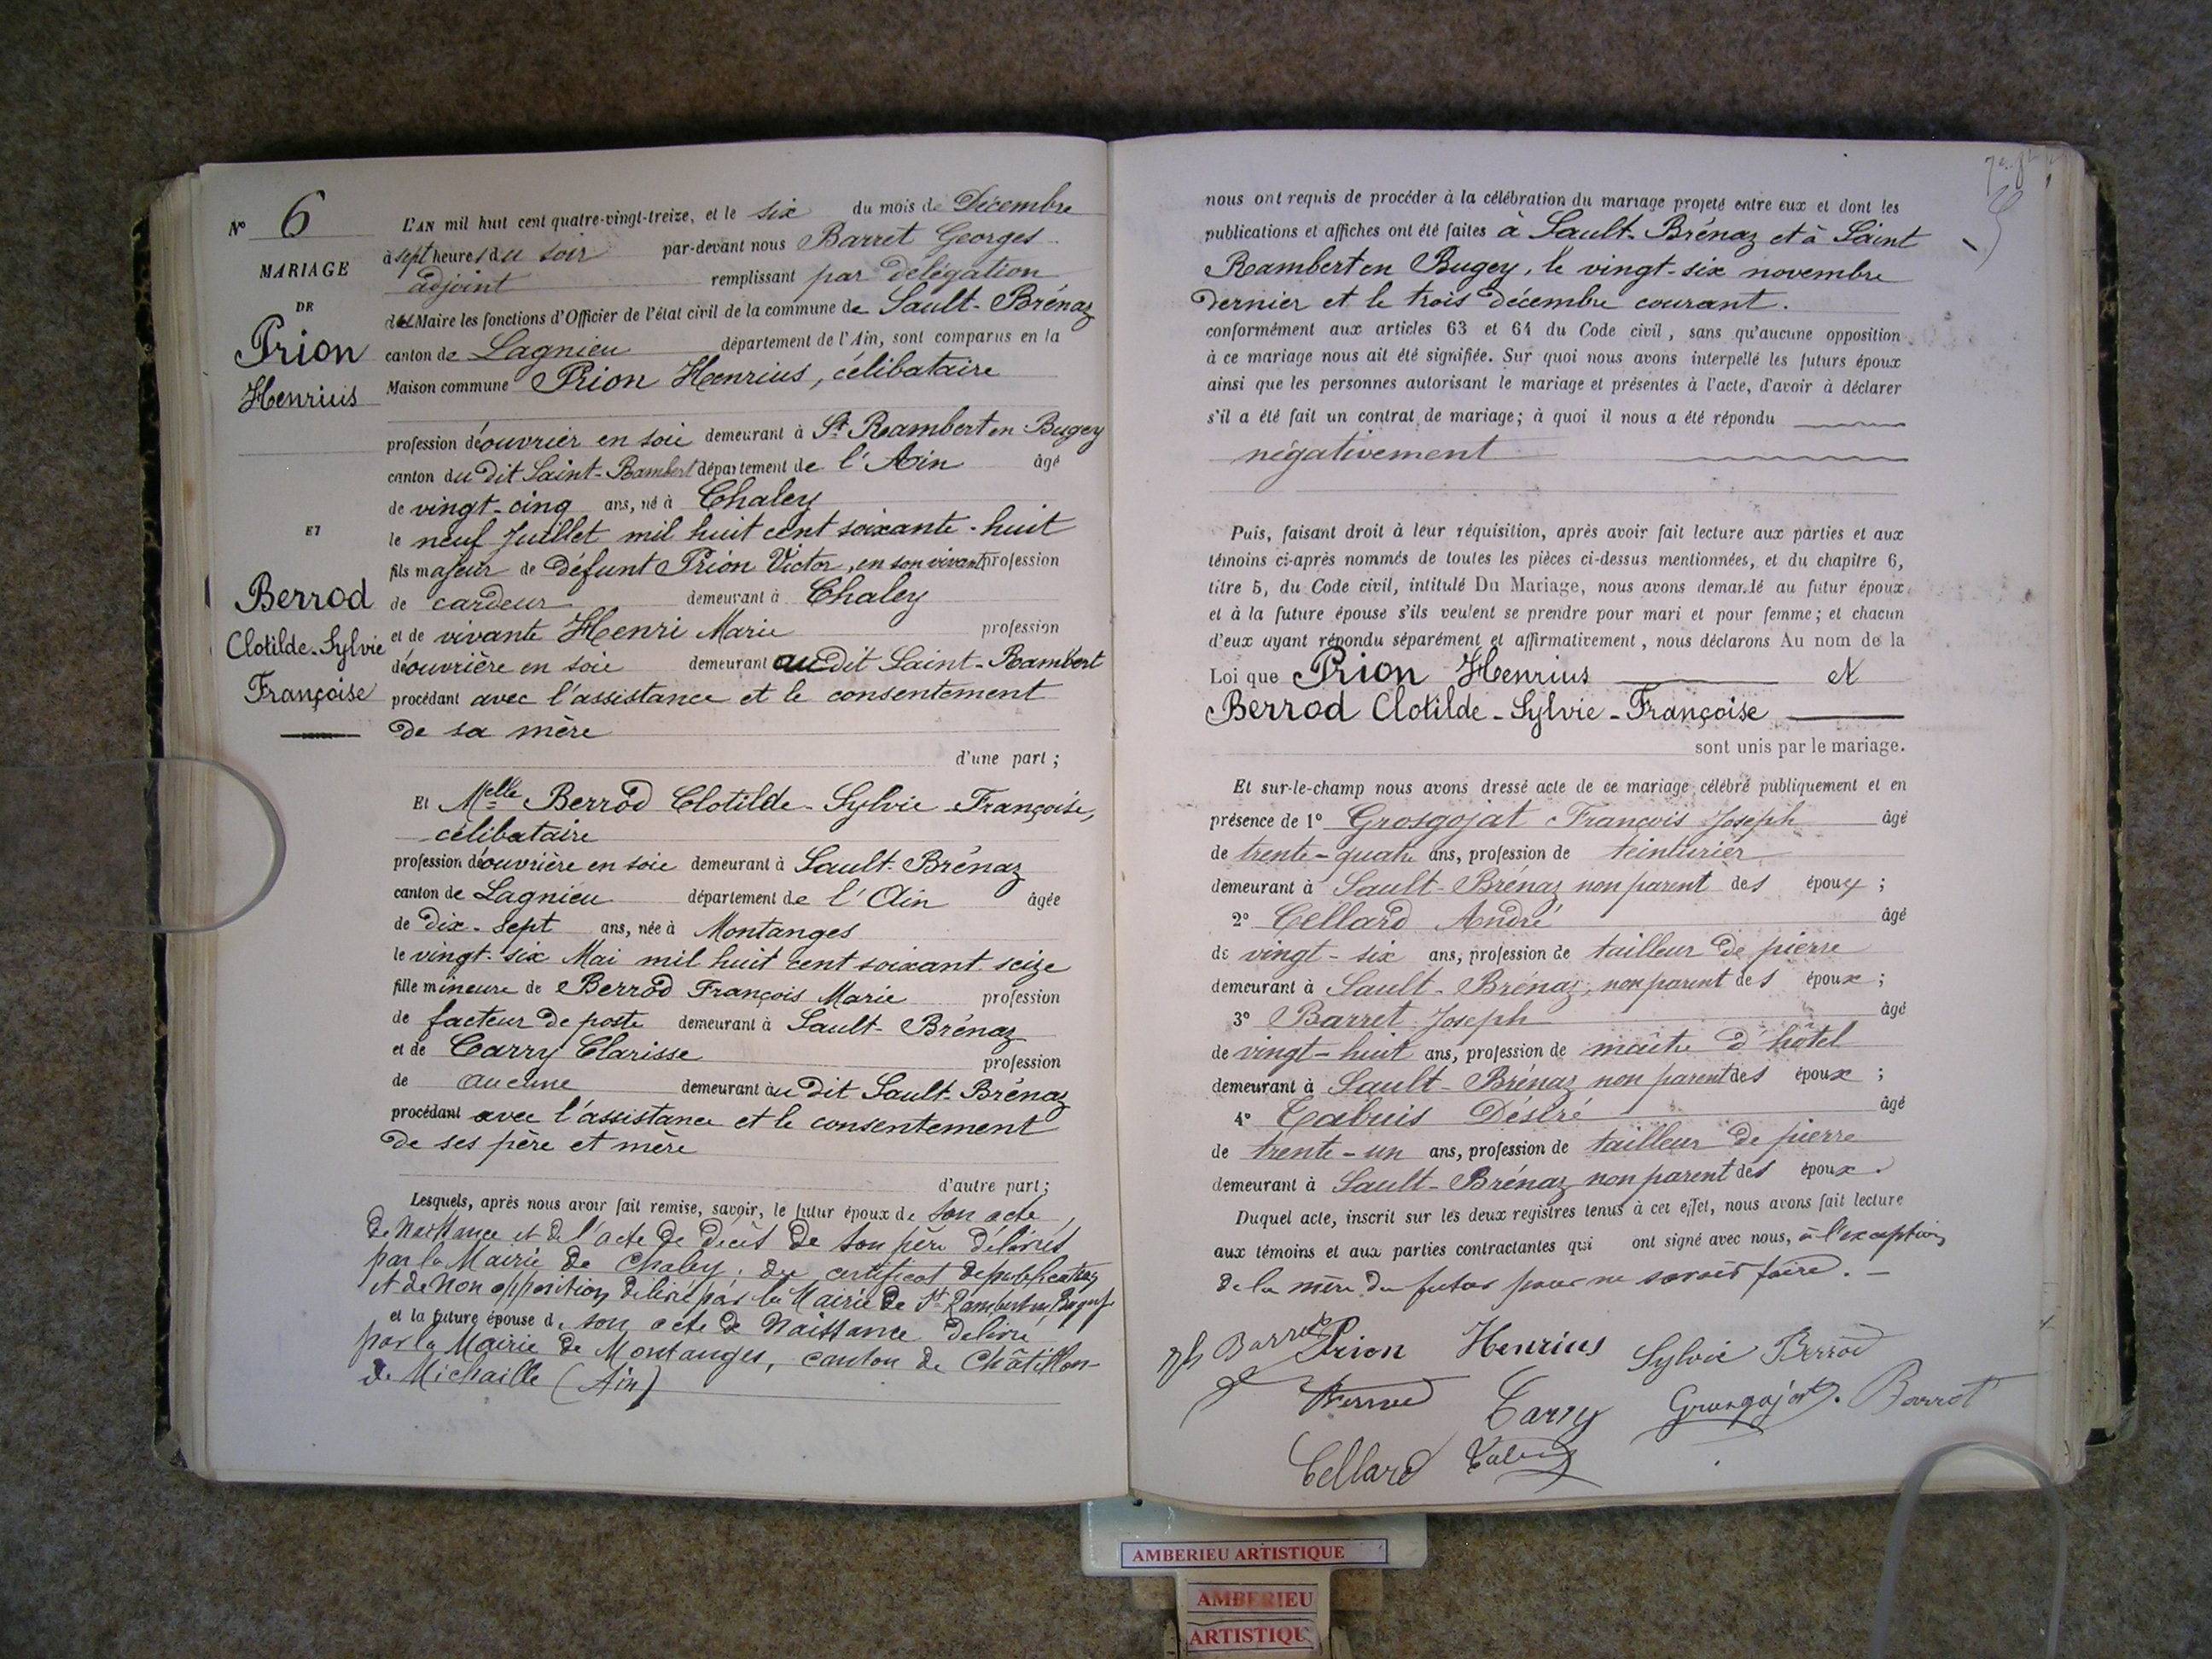 N° 6
MARIAGE
DE
Prion
Henrius
ET
Berrod
Clotilde-Sylvie
Françoise
L'AN mil huit cent quatre-vingt-treize, et le six du mois de Décembre
à sept heures du soir par-devant nous Barret Georges
adjoint remplissant par délégation
du Maire les fonctions d'Officier de l'état civil de la commune de Sault-Brénaz
canton de Lagnieu département de l'Ain, sont comparus en la
Maison commune Prion Henrius, célibataire
profession d'ouvrier en soie demeurant à St Rambert en Bugey
canton du dit Saint-Rambert département de l'Ain âgé
de vingt-cinq ans, né à Chaley
le neuf Juillet mil huit cent soixante-huit
fils majeur de défunt Prion Victor, en son vivant profession
de cardeur demeurant à Chaley
et de vivante Henri Marie profession
d'ouvrière en soie demeurant au dit Saint-Rambert
procédant avec l'assistance et le consentement
de sa mère
d'une part ;
Et Melle Berrod Clotilde-Sylvie-Françoise,
célibataire
profession d'ouvrière en soie demeurant à Sault-Brénaz
canton de Lagnieu département de l'Ain âgée
de dix-sept ans, née à Montanges
le vingt-six Mai mil huit cent soixant seize
fille mineure de Berrod François Marie profession
de facteur de poste demeurant à Sault-Brénaz
et de Carry Clarisse profession
de aucune demeurant au dit Sault-Brénaz
procédant avec l'assistance et le consentement
de ses père et mère
d'autre part ;
Lesquels, après nous avoir fait remise, savoir, le futur époux de son acte
de Naissance et de l'acte de décès de son père délivrés
par la Mairie de Chaley, du certificat de publication
et de Non opposition délivré par la Mairie de St Rambert en Bugey
et la future épouse de son acte de Naissance délivré
par la Mairie de Montanges, canton de Châtillon-
de Michaille (Ain)
nous ont requis de procéder à la célébration du mariage projeté entre eux et dont les
publications et affiches ont été faites à Sault-Brénaz et à Saint
Rambert en Bugey, le vingt-six novembre
dernier et le trois décembre courant.
conformément aux articles 63 et 64 du Code civil, sans qu'aucune opposition
à ce mariage nous ait été signifiée. Sur quoi nous avons interpellé les futurs époux
ainsi que les personnes autorisant le mariage et présentes à l'acte, d'avoir à déclarer
s'il a été fait un contrat de mariage; à quoi il nous a été répondu
négativement
Puis, faisant droit à leur réquisition, après avoir fait lecture aux parties et aux
témoins ci-après nommés de toutes les pièces ci-dessus mentionnées, et du chapitre 6,
titre 5, du Code civil, intitulé Du Mariage, nous avons demandé au futur époux
et à la future épouse s'ils veulent se prendre pour mari et pour femme; et chacun
d'eux ayant répondu séparément et affirmativement, nous déclarons Au nom de la
Loi que Prion Henrius et
Berrod Clotilde-Sylvie-Françoise
sont unis par le mariage.
Et sur-le-champ nous avons dressé acte de ce mariage célébré publiquement et en
présence de 1° Grosgojat François Joseph âgé
de trente-quatre ans, profession de teinturier
demeurant à Sault-Brénaz non parent des époux ;
2° Cellard André âgé
de vingt-six ans, profession de tailleur de pierre
demeurant à Sault-Brénaz, non parent des époux ;
3° Barret Joseph âgé
de vingt-huit ans, profession de maître d'hôtel
demeurant à Sault-Brénaz non parent des époux ;
4° Cabuis Désiré âgé
de trente-un ans, profession de tailleur de pierre
demeurant à Sault-Brénaz non parent des époux.
Duquel acte, inscrit sur les deux registres tenus à cet effet, nous avons fait lecture
aux témoins et aux parties contractantes qui ont signé avec nous, à l'exception
de la mère du futur pour ne savoir faire.
Barret Prion Henrius Sylvie Berrod
Berrod Carry Grosgojat. Barret
Cellard Cabuis
AMBERIEU ARTISTIQUE
AMBERIEU
ARTISTIQU